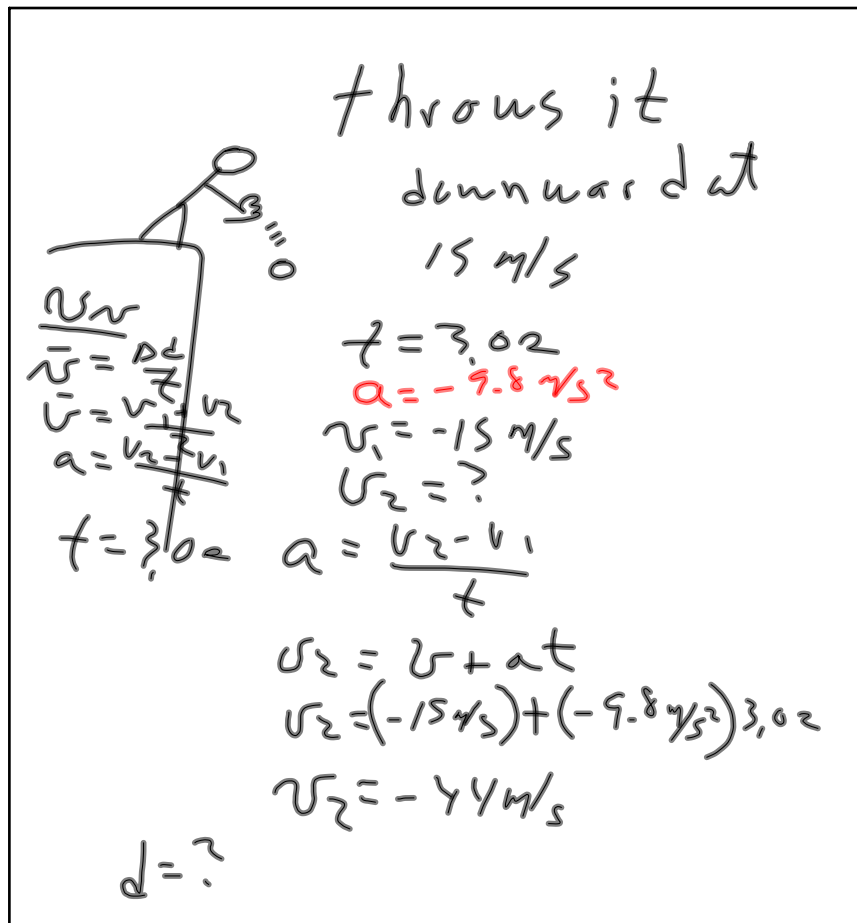 throws it
downward at
15 m/s
v̄ = Δd/t
v̄ = v₁ + v₂/2
a = v₂ - v₁/t
t = 3.02
t = 3.02
a = -9.8 m/s²
v₁ = -15 m/s
v₂ = ?
a = v₂ - v₁/t
v₂ = v + at
v₂ = (-15 m/s) + (-9.8 m/s²) 3.02
v₂ = -44 m/s
d = ?